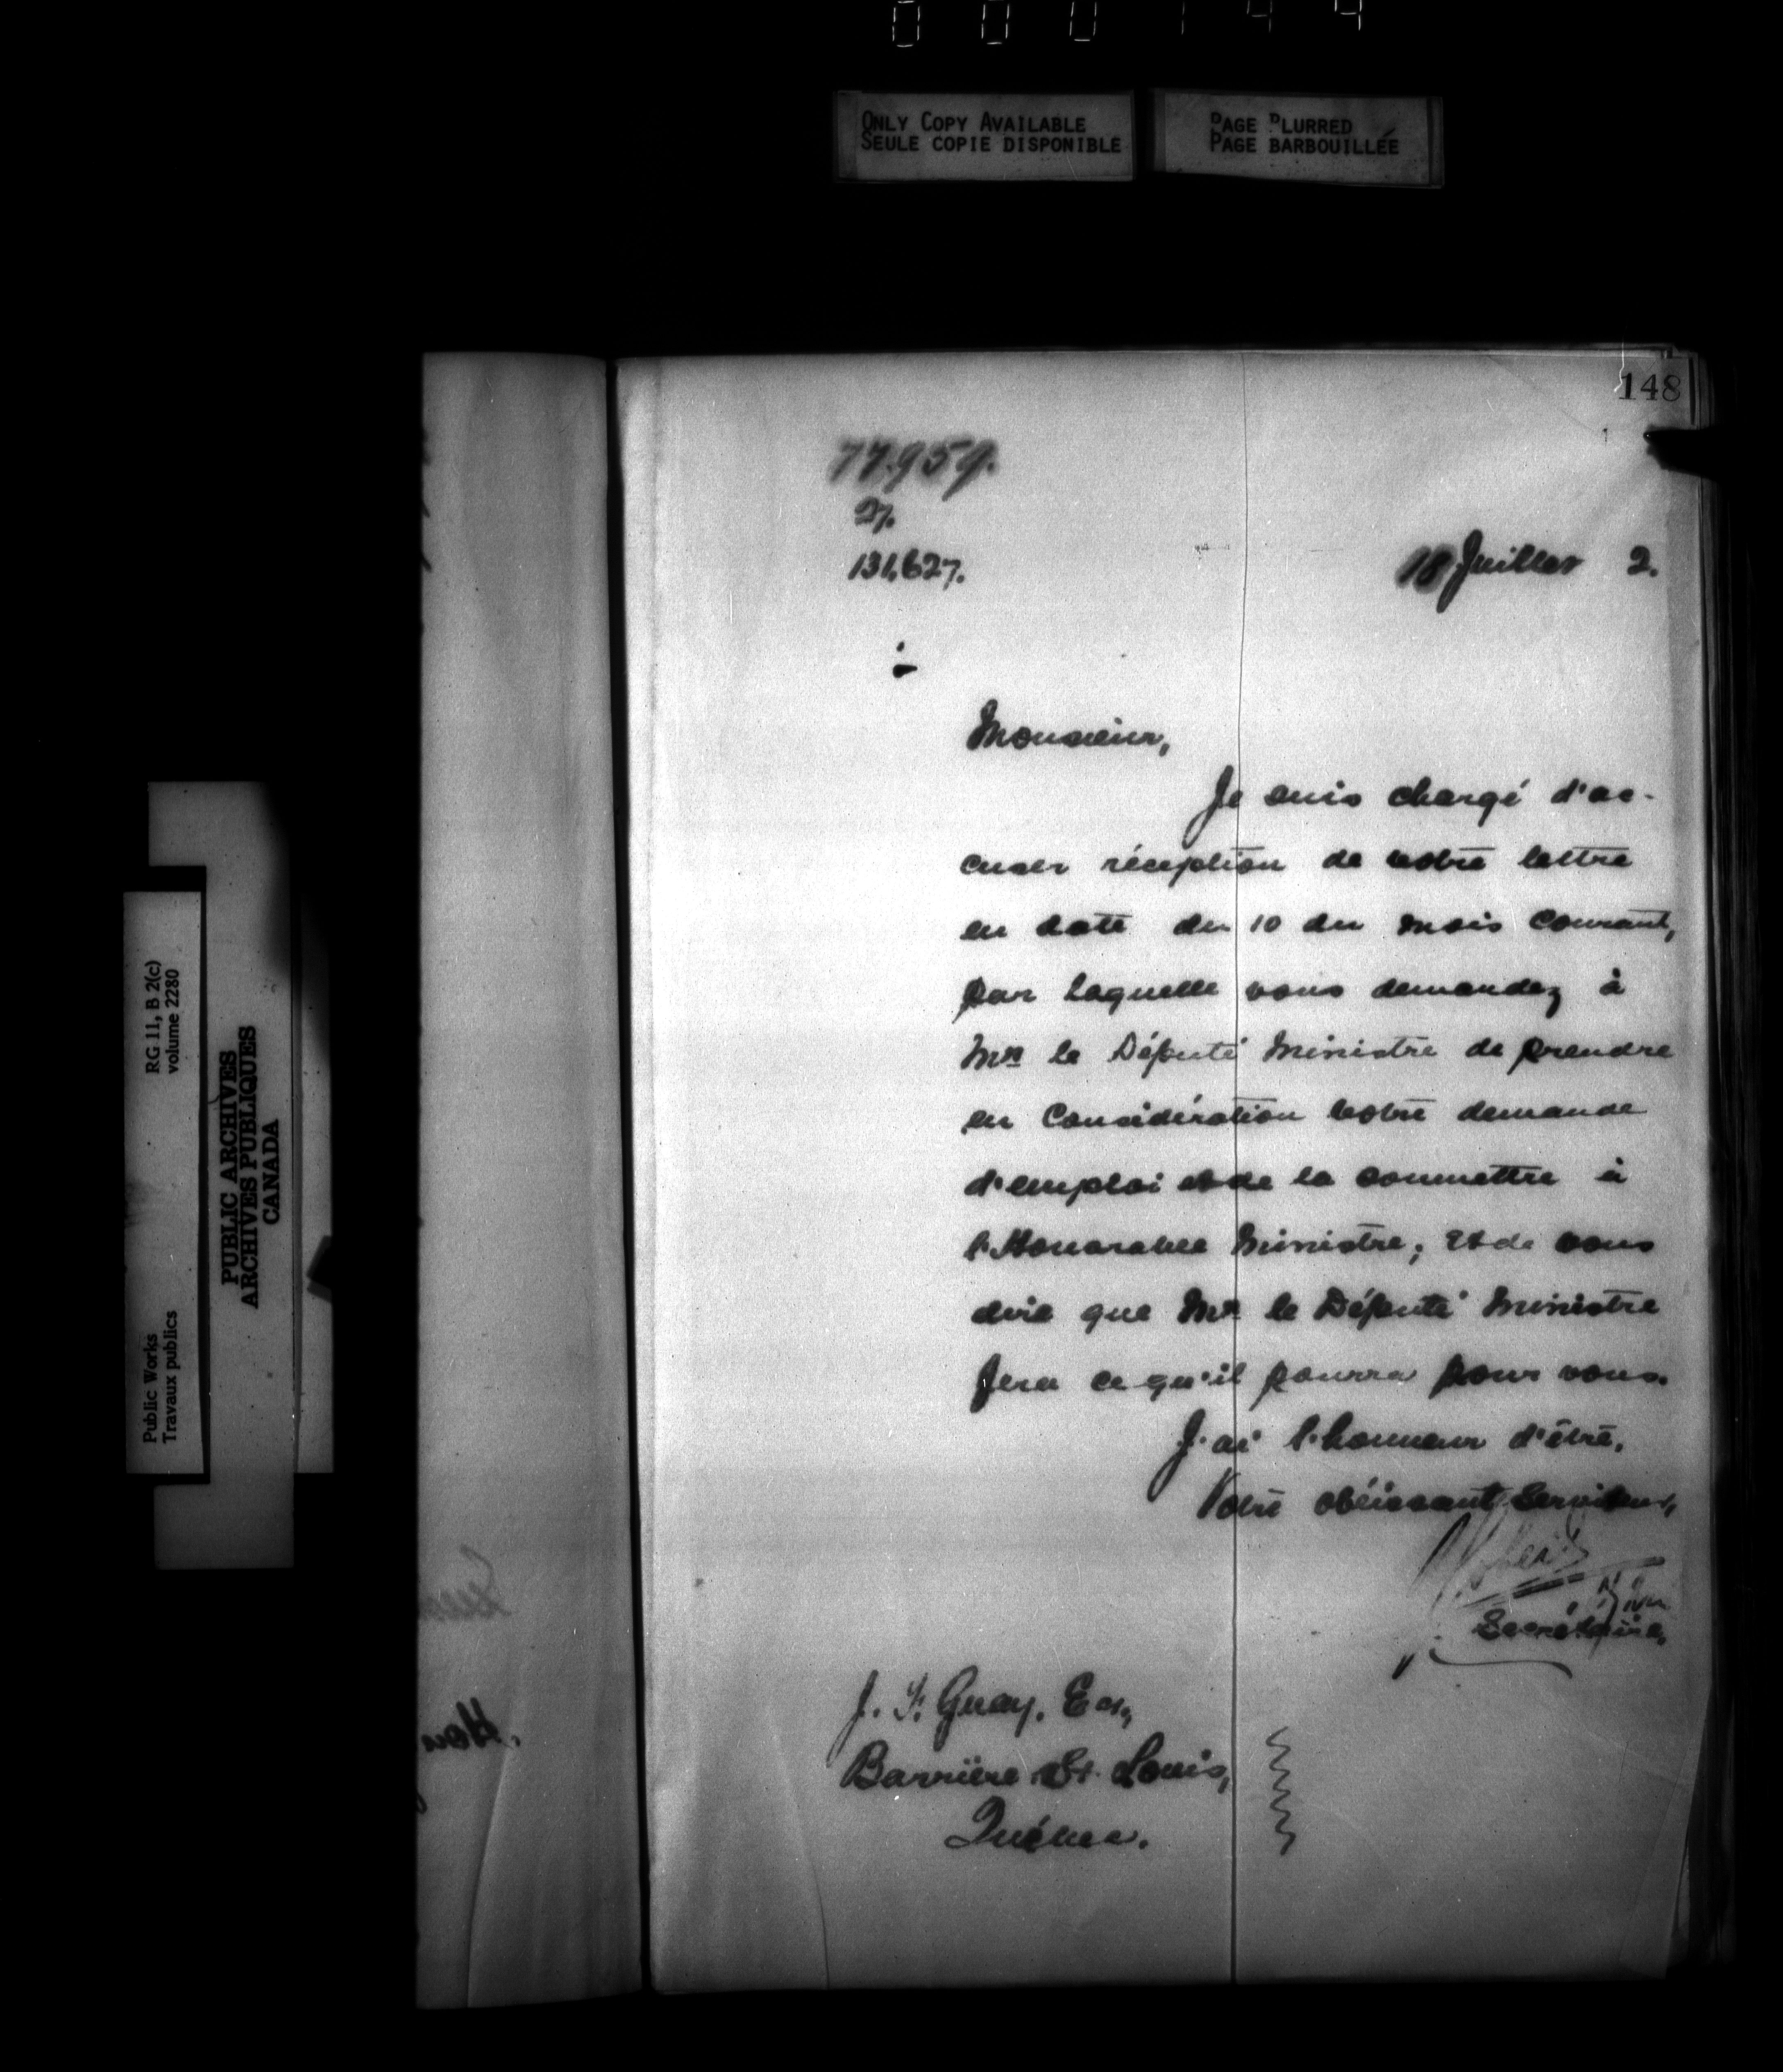 000144
ONLY COPY AVAILABLE
SEULE COPIE DISPONIBLE
PAGE BLURRED
PAGE BARBOUILLÉE
148
77.959.
27.
131,627.
18 Juillet 2.
Monsieur,
Je suis chargé d'ac-
cuser réception de votre lettre
en date du 10 du mois courant,
par laquelle vous demandez à
Mr le Député Ministre de prendre
en Considération votre demande
d'emploi et de la soumettre à
l'Honorable Ministre; Et de vous
dire que Mr le Député Ministre
fera ce qu'il pourra pour vous.
J'ai l'honneur d'être,
Votre obéissant Serviteur,
Secrétaire,
J. F. Guay, Esq,
Barrière St. Louis,
Québec.
RG 11, B 2(c)
volume 2280
PUBLIC ARCHIVES
ARCHIVES PUBLIQUES
CANADA
Public Works
Travaux publics